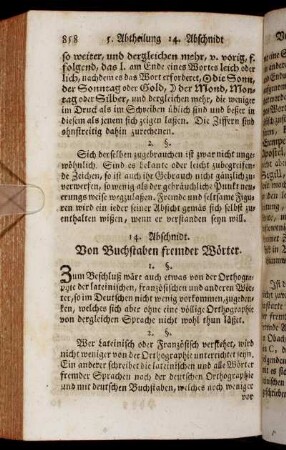 858 5. Abtheilung 14. Abschnidt
so weiter, und dergleichen mehr, v. vorig, f.
folgend, das l. am Ende eines Wortes leich oder
lich, nachdem es das Wort erforderet, ☉ die Sonn,
der Sonntag oder Gold, ☽ der Mond, Mon-
tag oder Silber, und dergleichen mehr, die weniger
im Druck als im Schreiben üblich sind und besser in
diesem als jenem sich zeigen lassen. Die Ziffern sind
ohnstreitig dahin zurechenen.
2. §.
Sich derselben zugebrauchen ist zwar nicht unge-
wöhnlich. Sind es bekante oder leicht zubegreifen-
de Zeichen, so ist auch ihr Gebrauch nicht gänzlich zu
verwerfen, so wenig als der gebräuchliche Punkt neue-
rungs weise wegzulassen. Fremde und seltsame Figu-
ren wird ein ieder seiner Absicht gemäs sich selbst zu
enthalten wissen, wenn er verstanden seyn will.
14. Abschnidt.
Von Buchstaben fremder Wörter.
1. §.
Zum Beschluß wäre auch etwas von der Orthogra-
phie der lateinischen, französischen und anderen Wör-
ter, so im Deutschen nicht wenig vorkommen, zugeden-
ken, welches sich aber ohne eine völlige Orthographie
von dergleichen Sprache nicht wohl thun läßet.
2. §.
Wer lateinisch oder Französisch verstehet, wird
nicht weniger von der Orthographie unterrichtet seyn.
Ein anderer schreibet die lateinischen und alle Wörter
fremder Sprachen nach der deutschen Orthographie
und mit deutschen Buchstaben, welches noch weniger
vor